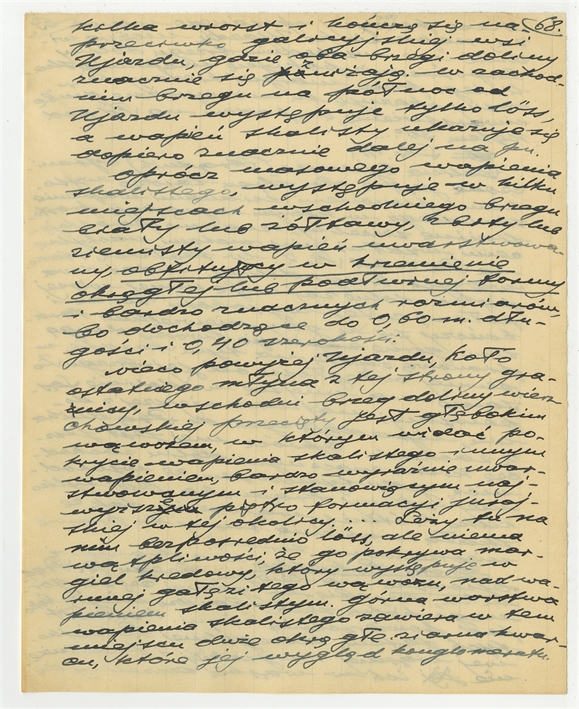 68.
kilka wiorst i kończą się na-
przeciwko galicyjskiej wsi
Ujazdu, gdzie oba brzegi doliny
znacznie się zniżają. w zachod-
nim brzegu na północ od
Ujazdu występuje tylko löss,
a wapień skalisty ukazuje się
dopiero znacznie dalej na pn.
oprócz masowego wapienia
skalistego, występuje w kilku
miejscach wschodniego brzegu
biały lub żółtawy, zbity lub
ziemisty wapień uwarstwowa-
ny, obfitujący w krzemienie
okrągłej lub podłużnej formy
i bardzo znacznych rozmiarów,
bo dochodzące do 0,60 m. dłu-
gości i 0,40 szerokości.
nieco powyżej Ujazdu, koło
ostatniego młyna z tej strony gra-
nicy, wschodni brzeg doliny wierz-
chowskiej przecięty jest głębokim
wąwozem, w którym widać po-
krycie wapienia skalistego innym
wapieniem, bardzo wyraźnie uwar-
stwowanym i stanowiącym naj-
wyższe piętro formacji juraj-
skiej w tej okolicy.... Leży tu na
nim bezpośrednio löss, ale niema
wątpliwości, że go pokrywa mar-
giel kredowy, który występuje w
innej gałęzi tego wąwozu, nad wa-
pieniem skalistym. Górna warstwa
wapienia skalistego zawiera w tem
miejscu duże okrągłe ziarna kwar-
cu, które jej wygląd konglomeratu